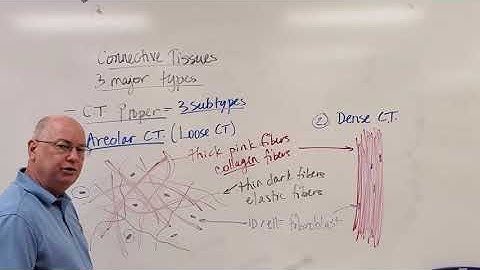 Connective Tissues
3 major types
- CT Proper - 3 subtypes
Areolar CT. (Loose CT)
② Dense CT.
thick pink fibers
collagen fibers
thin dark fibers
elastic fibers
ID cell = fibroblast